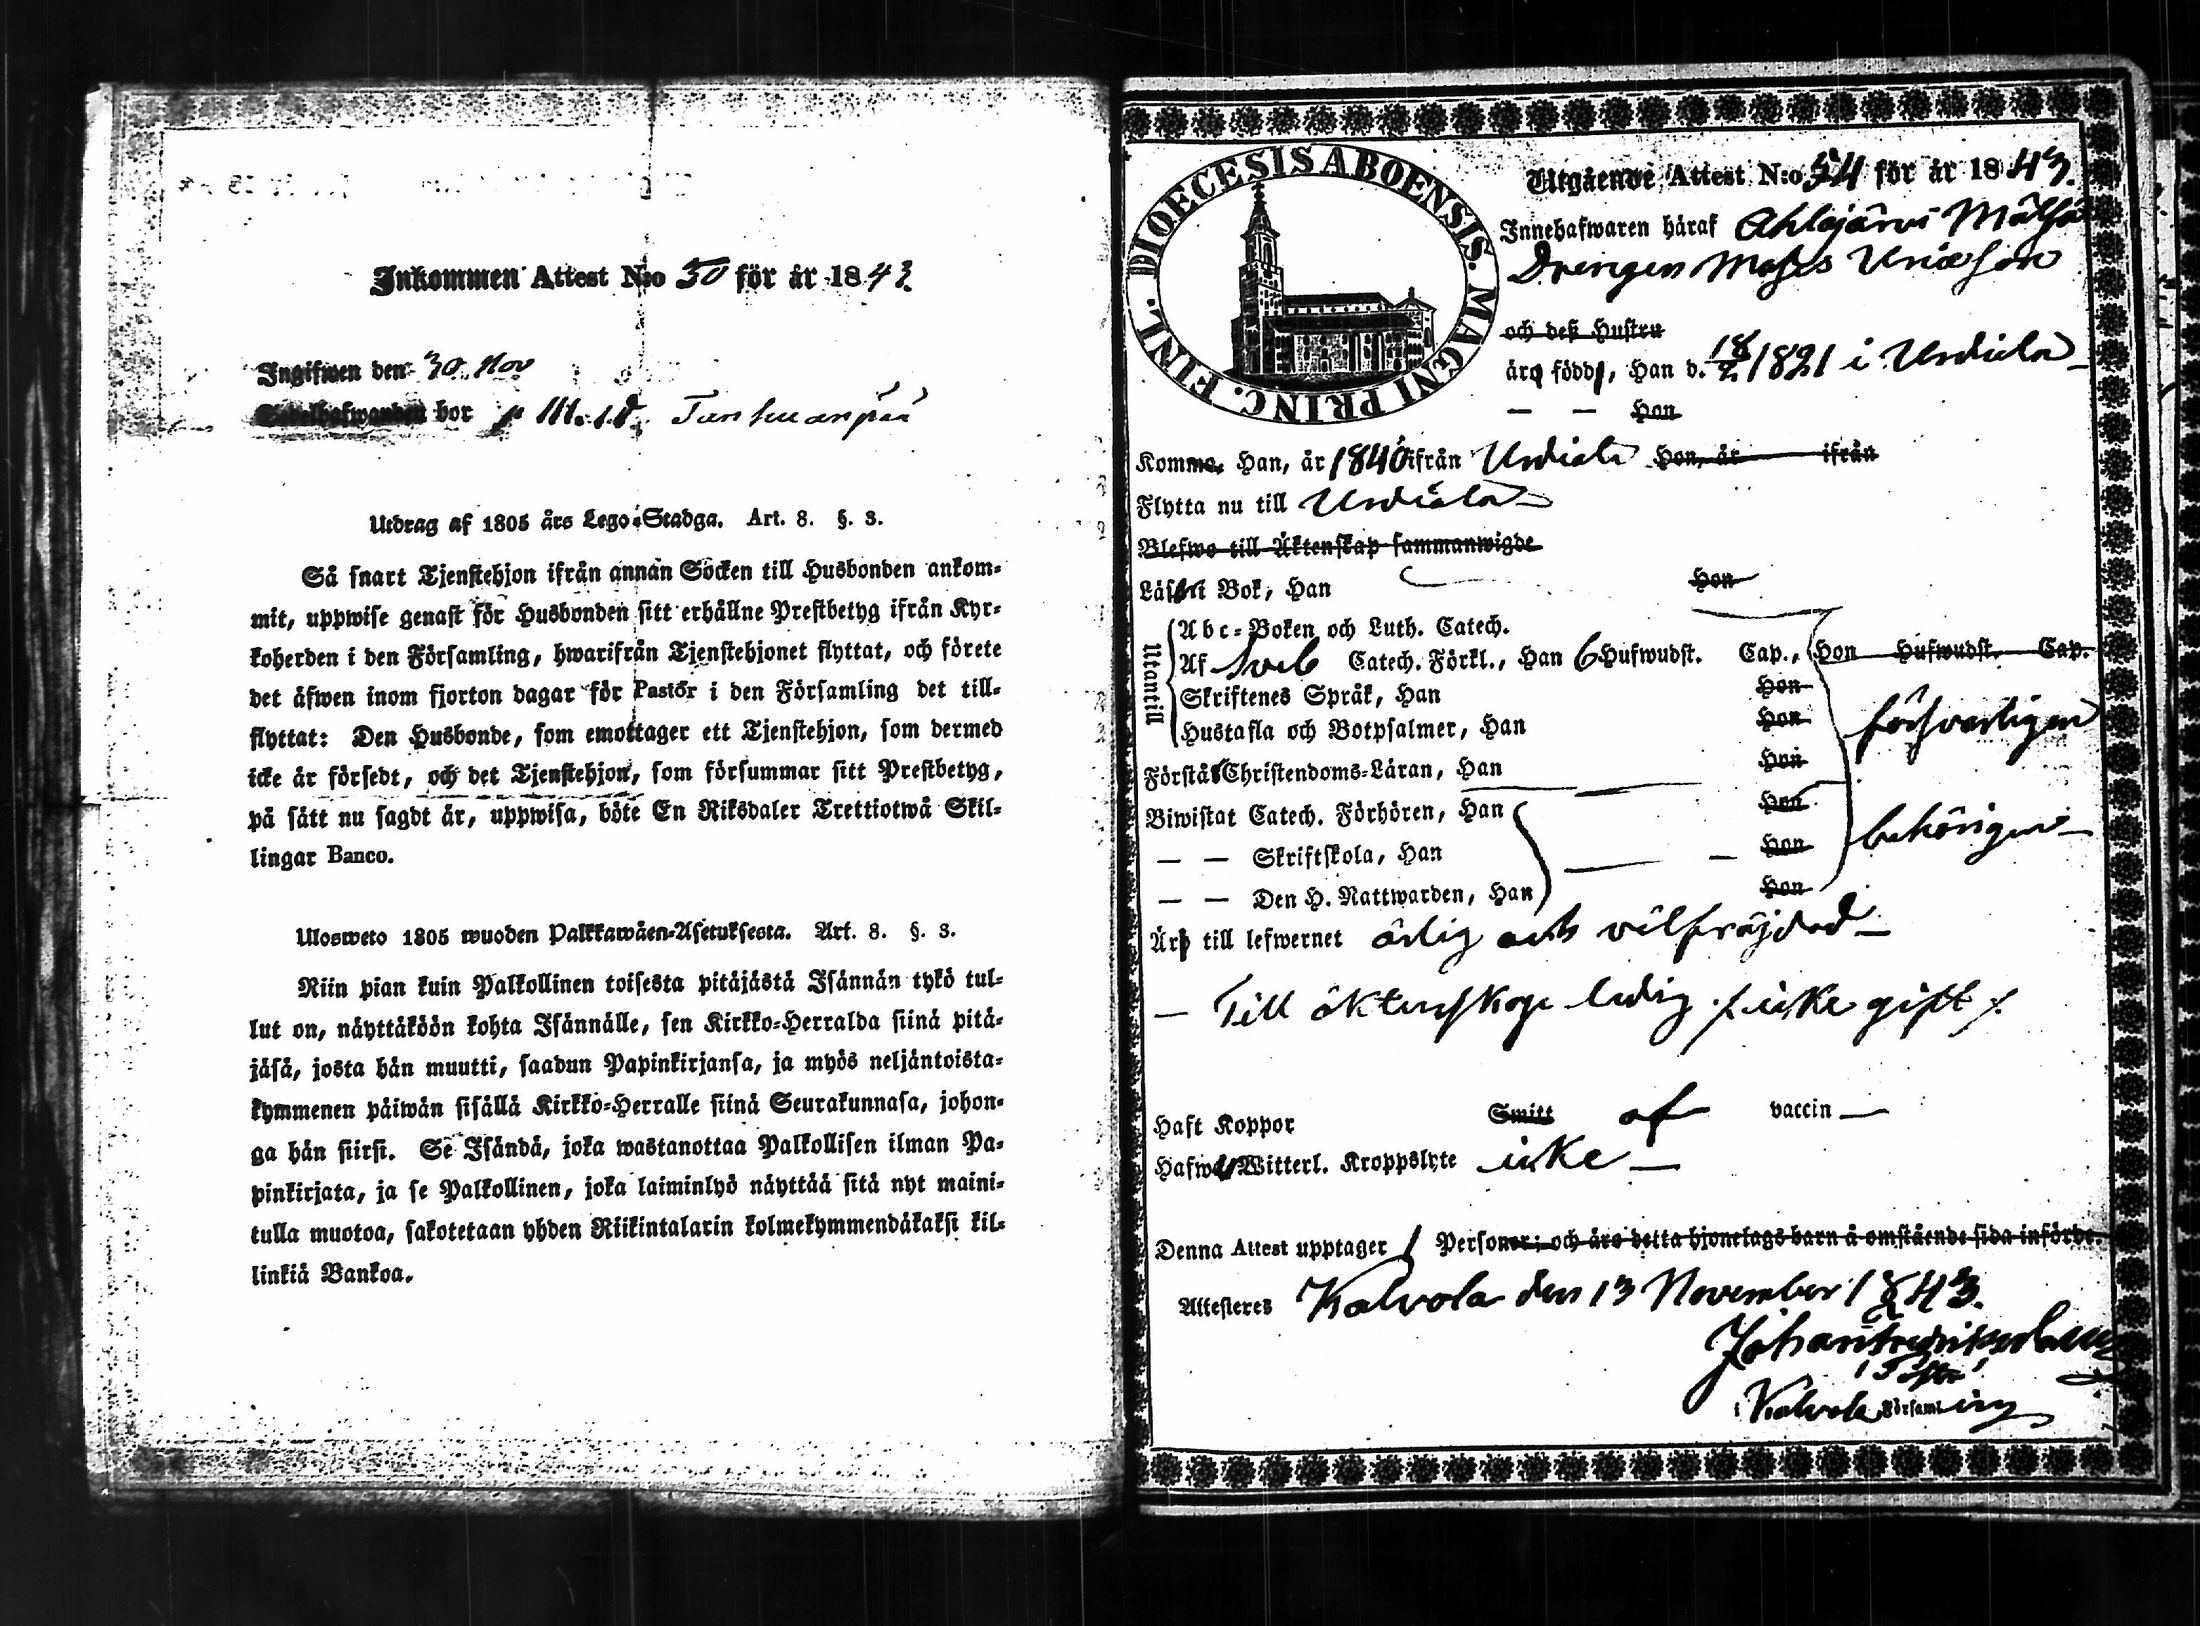 Inkommen Attest N:o 50 för år 1843.
Ingifwen den 30 Nov
bor
Utdrag af 1805 års Lego-Stadga. Art. 8. §. 3.
Så snart Tjenstehjon ifrån annan Socken till Husbonden ankom-
mit, uppwise genast för Husbonden sitt erhållne Prestbetyg ifrån Kyr-
koherden i den Församling, hwarifrån Tjenstehjonet flyttat, och förete
det äfwen inom fjorton dagar för Pastor i den Församling det till-
flyttat: Den Husbonde, som emottager ett Tjenstehjon, som dermed
icke är försedt, och det Tjenstehjon, som försummar sitt Prestbetyg,
på sätt nu sagdt är, uppwisa, böte En Riksdaler Trettiotwå Skil-
lingar Banco.
Ulosweto 1805 wuoden Palkkawäen-Asetuksesta. Art. 8. §. 3.
Niin pian kuin Palkollinen toisesta pitäjästä Isännän tykö tul-
lut on, näyttäköön kohta Isännälle, sen Kirkko-Herralda siinä pitä-
jäsä, josta hän muutti, saadun Papinkirjansa, ja myös neljäntoista-
kymmenen päiwän sisällä Kirkko-Herralle siinä Seurakunnasa, johon-
ga hän siirsi. Se Isändä, joka wastanottaa Palkollisen ilman Pa-
pinkirjata, ja se Palkollinen, joka laiminlyö näyttää sitä nyt maini-
tulla muotoa, sakotetaan yhden Riikintalarin kolmekymmendäkaksi kil-
linkiä Bankoa.
FINL. DIOECESIS ABOENSIS. MAGNI PRINC.
Utgående Attest N:o 54 för år 1843.
Innehafwaren häraf Ahlajärvi
Drengen
och deß Hustru
äro födde, Han d. 18/2 1821 i Urdiala
— — Hon
Komme, Han, år 1840 ifrån Urdiala Hon, år ifrån
Flytta nu till Urdiala
Blefwo till Äktenskap sammanwigde
Läsa i Bok, Han Hon
Utantill
Abc-Boken och Luth. Catech.
Af Sveb Catech. Förkl., Han 6 Hufwudst. Cap., Hon Hufwudst. Cap.
Skriftenes Språk, Han Hon
Hustafla och Botpsalmer, Han Hon försvarligen
Förstår Christendoms-Läran, Han Hon
Biwistat Catech. Förhören, Han Hon
— — Skriftskola, Han Hon behörigen
— — Den H. Nattwarden, Han Hon
Är till lefwernet ärlig och välfräjdad
— Till äktenskap ledig /: icke gift :/
Haft Koppor Smitt af vaccin
Hafwa Witterl. Kroppslyte icke
Denna Attest upptager 1 Personer; och äro detta hjonelags barn å omstående sida införde.
Attesteres Kalvola den 13 November 1843.
Johan
i Kalvola Församling